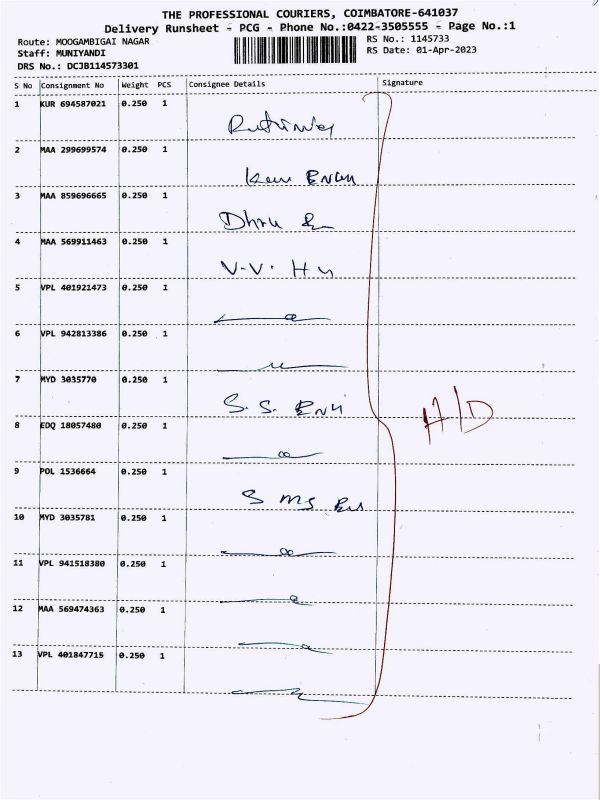 THE PROFESSIONAL COURIERS, COIMBATORE-641037
Delivery Runsheet - PCG - Phone No.:0422-3505555 - Page No.:1
Route: MOOGAMBIGAI NAGAR RS No.: 1145733
Staff: MUNIYANDI RS Date: 01-Apr-2023
DRS No.: DCJB114573301
S No Consignment No Weight PCS Consignee Details Signature
1 KUR 694587021 0.250 1
2 MAA 299699574 0.250 1
3 MAA 859696665 0.250 1
Dhru
4 MAA 569911463 0.250 1
V.V. H
5 VPL 401921473 0.250 1
6 VPL 942813386 0.250 1
7 MYD 3035770 0.250 1
S. S.
A/D
8 EDQ 18057480 0.250 1
9 POL 1536664 0.250 1
S MS
10 MYD 3035781 0.250 1
11 VPL 941518380 0.250 1
12 MAA 569474363 0.250 1
13 VPL 401847715 0.250 1